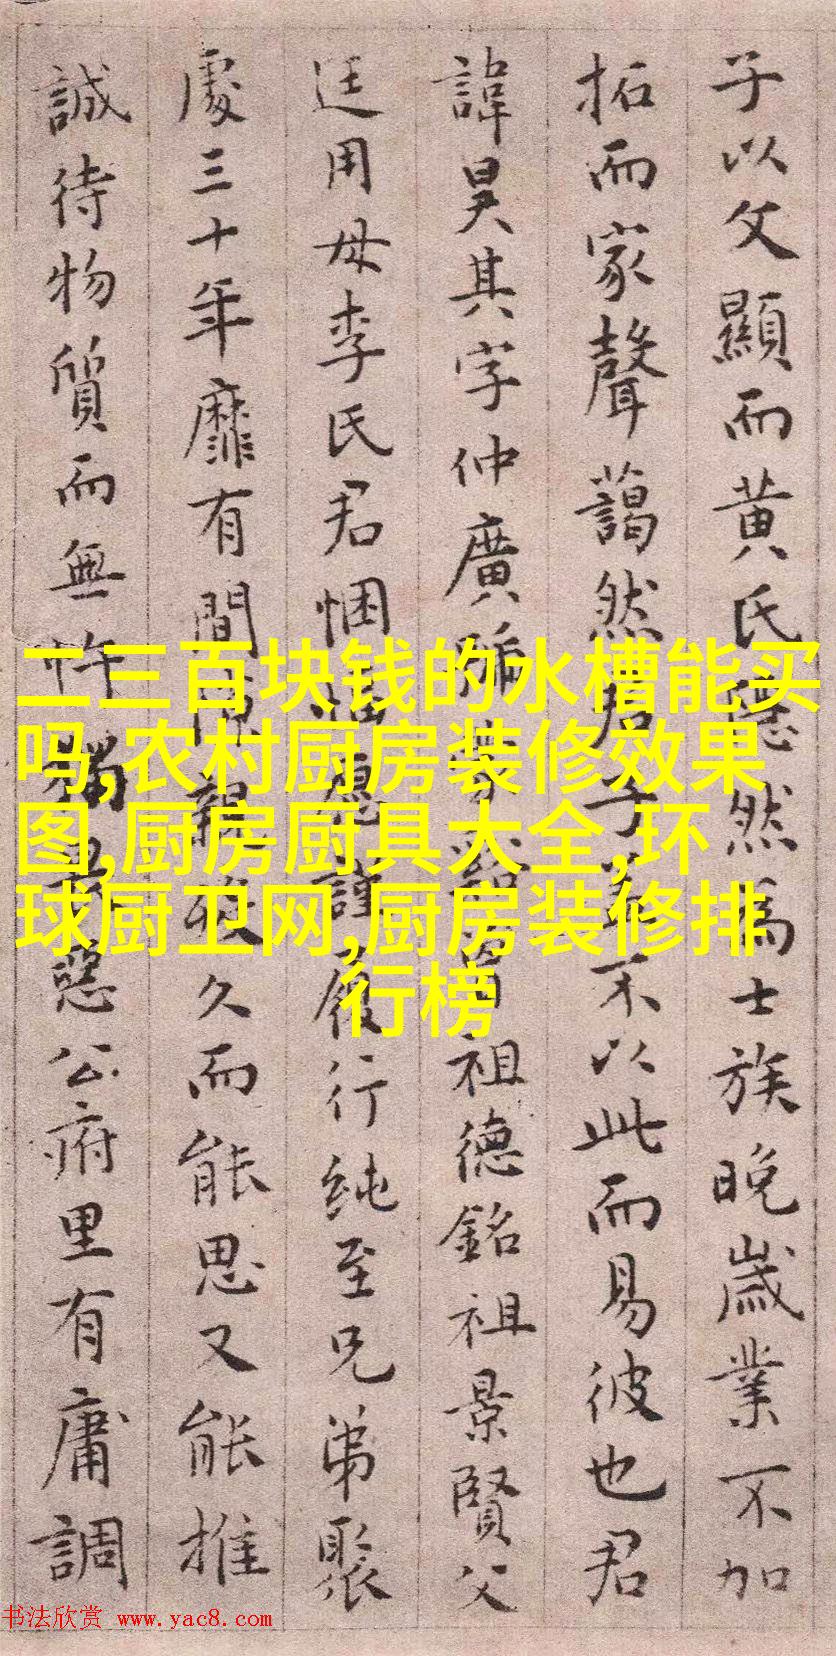 子以父顯而黄氏隱然為士族晚歲業不加
拓而家聲藹然君子蓋不以此而易彼也君
諱昊其字仲廣 曾祖德銘祖景賢父
廷用母李氏君悃愊愿謹履行纯至兄弟聚
處三十年靡有間 親歿久而能思又能推
誠待物質而無忤 公府里有庸調
二三百块钱的水槽能买
吗,农村厨房装修效果
图,厨房厨具大全,环
球厨卫网,厨房装修排
行榜
书法欣赏 www.yac8.com